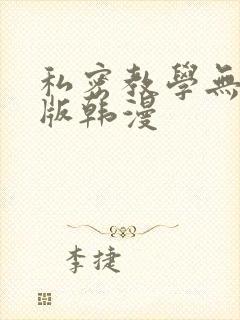 私密教學無
版韩漫
李捷